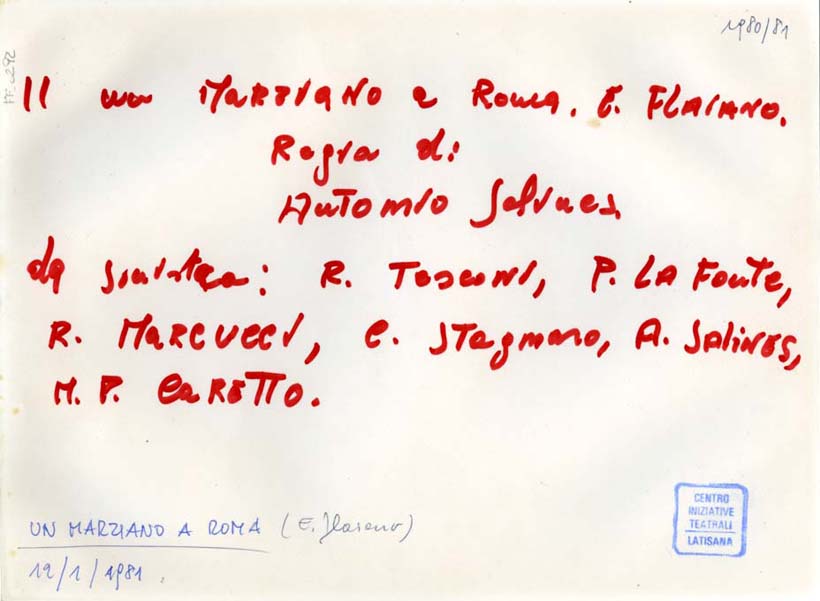 1980/81
Il un MARZIANO a Roma. E. FLAIANO.
Regia di
Antonio Salines
da sinistra: R. Tesconi, P. LA Fonte,
R. MARCUCCI, C. Stagnaro, A. SALINES,
M. P. CARETTO.
UN MARZIANO A ROMA (E. Flaiano)
12/1/1981.
CENTRO
INIZIATIVE
TEATRALI
LATISANA